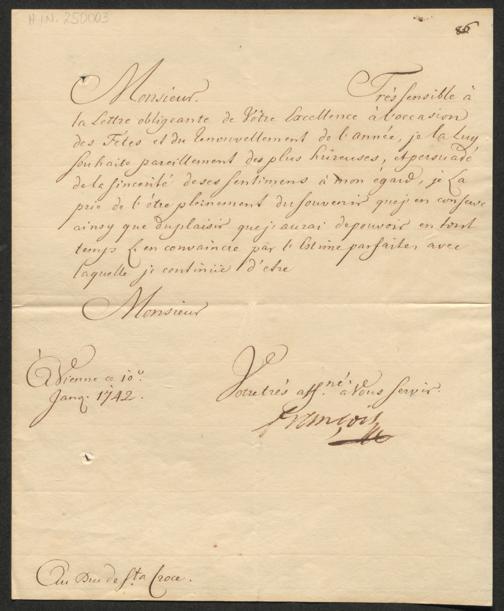 H.I.N. 250003
86
Monsieur. Trés sensible à
la Lettre obligeante de Vôtre Excellence à l'occasion
des Fétes et du renouvellement de l'année, je la luy
souhaite pareillement des plus hûreuses, et persuadé
de la sincerité de ses sentimens à mon égard, je La
prie de l'étre pleinement du souvenir que j'en conserve
ainsy que du plaisir que je aurai de pouvoir en tout
temps L'en convaincre par l'Estime parfaite, avec
laquelle je continüe d'etre
Monsieur
à Vienne ce 10.
Janv. 1742.
Votre trés aff.né à Vous servir.
François
Au Duc de S.ta Croce.